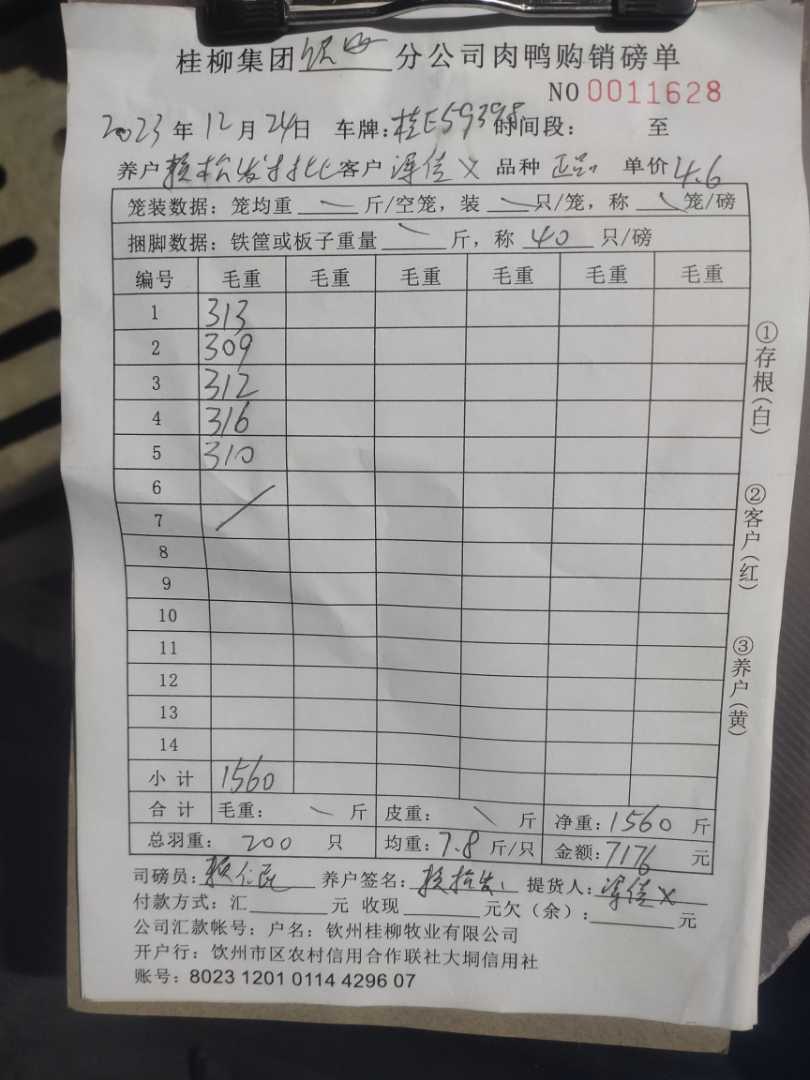 桂柳集团钦州分公司肉鸭购销磅单
NO 0011628
2023年12月24日 车牌:桂E59398 时间段: 至
养户 客户 品种 正品 单价4.6
笼装数据:笼均重 斤/空笼,装 只/笼,称 笼/磅
捆脚数据:铁筐或板子重量 斤,称 40 只/磅
编号 毛重 毛重 毛重 毛重 毛重 毛重
1 313
2 309
3 312
4 316
5 310
6
7
8
9
10
11
12
13
14
小计 1560
合计 毛重: 斤 皮重: 斤 净重:1560斤
总羽重:200 只 均重:7.8斤/只 金额:7176元
司磅员: 养户签名: 提货人:
付款方式:汇 元 收现 元欠(余): 元
公司汇款帐号:户名:钦州桂柳牧业有限公司
开户行:饮州市区农村信用合作联社大垌信用社
账号:8023 1201 0114 4296 07
①存根(白)
②客户(红)
③养户(黄)